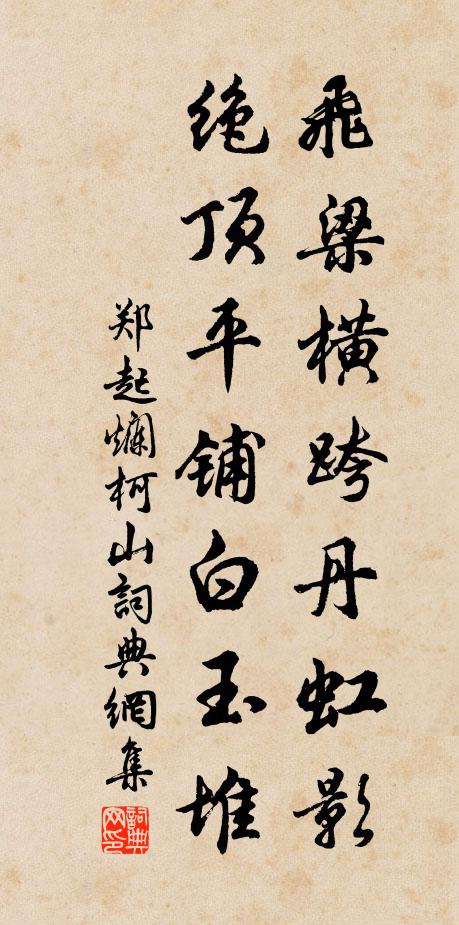 飛梁橫跨丹虹影
绝顶平铺白玉堆
郑起爛柯山詞典網集
詞典网印